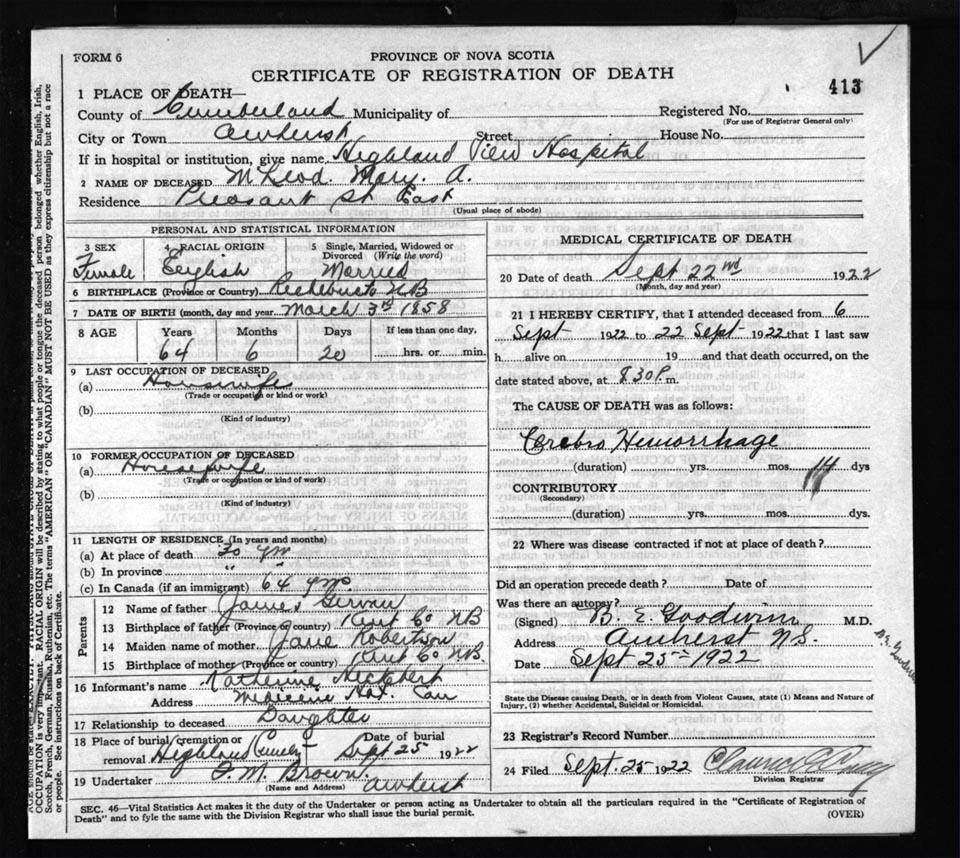 FORM 6
PROVINCE OF NOVA SCOTIA
CERTIFICATE OF REGISTRATION OF DEATH
413
1 PLACE OF DEATH—
County of Cumberland Municipality of
Registered No.
(For use of Registrar General only)
City or Town Amherst Street House No.
If in hospital or institution, give name Highland View Hospital
2 NAME OF DECEASED McLeod. Mary. A.
Residence Pleasant St East
(Usual place of abode)
PERSONAL AND STATISTICAL INFORMATION
3 SEX
Female
4 RACIAL ORIGIN
English
5 Single, Married, Widowed or
Divorced (Write the word)
Married
6 BIRTHPLACE (Province or Country) Richibucto NB
7 DATE OF BIRTH (month, day and year) March 3rd 1858
8 AGE Years Months Days If less than one day,
64 6 20 hrs. or min.
9 LAST OCCUPATION OF DECEASED
(a) Housewife
(Trade or occupation or kind of work)
(b)
(Kind of industry)
10 FORMER OCCUPATION OF DECEASED
(a) Housewife
(Trade or occupation or kind of work)
(b)
(Kind of industry)
11 LENGTH OF RESIDENCE (In years and months)
(a) At place of death 30 yrs
(b) In province " "
(c) In Canada (if an immigrant) 64 yrs
Parents
12 Name of father James Girvan
13 Birthplace of father (Province or country) Kent Co NB
14 Maiden name of mother Jane Robertson
15 Birthplace of mother (Province or country) Kent Co NB.
16 Informant's name Katherine
Address Medicine Hat. Can
17 Relationship to deceased Daughter
18 Place of burial, cremation or
removal Highland Cemetery
Date of burial
Sept 25 1922
19 Undertaker F. M. Brown. Amherst
(Name and Address)
MEDICAL CERTIFICATE OF DEATH
20 Date of death Sept 22nd 1922
(Month, day and year)
21 I HEREBY CERTIFY, that I attended deceased from 6
Sept 1922 to 22 Sept 1922 that I last saw
h alive on 19 and that death occurred, on the
date stated above, at 8.30 P. m.
The CAUSE OF DEATH was as follows:
Cerebro Hemorrhage
(duration) yrs. mos. 14 dys
CONTRIBUTORY
(Secondary)
(duration) yrs. mos. dys.
22 Where was disease contracted if not at place of death?
Did an operation precede death? Date of
Was there an autopsy?
(Signed) B. E. Goodwin M.D.
Address Amherst N.S.
Date Sept 25th 1922
State the Disease causing Death, or in death from Violent Causes, state (1) Means and Nature of
Injury, (2) whether Accidental, Suicidal or Homicidal.
23 Registrar's Record Number
24 Filed Sept. 25 1922
Division Registrar
SEC. 46—Vital Statistics Act makes it the duty of the Undertaker or person acting as Undertaker to obtain all the particulars required in the "Certificate of Registration of
Death" and to fyle the same with the Division Registrar who shall issue the burial permit.
(OVER)
OCCUPATION is very important. RACIAL ORIGIN will be described by stating to what people or tongue the deceased person belonged whether English, Irish,
Scotch, French, German, Russian, Ruthenian, etc. The terms "AMERICAN" OR "CANADIAN" MUST NOT BE USED as they express citizenship but not a race
or people. See instructions on back of Certificate.